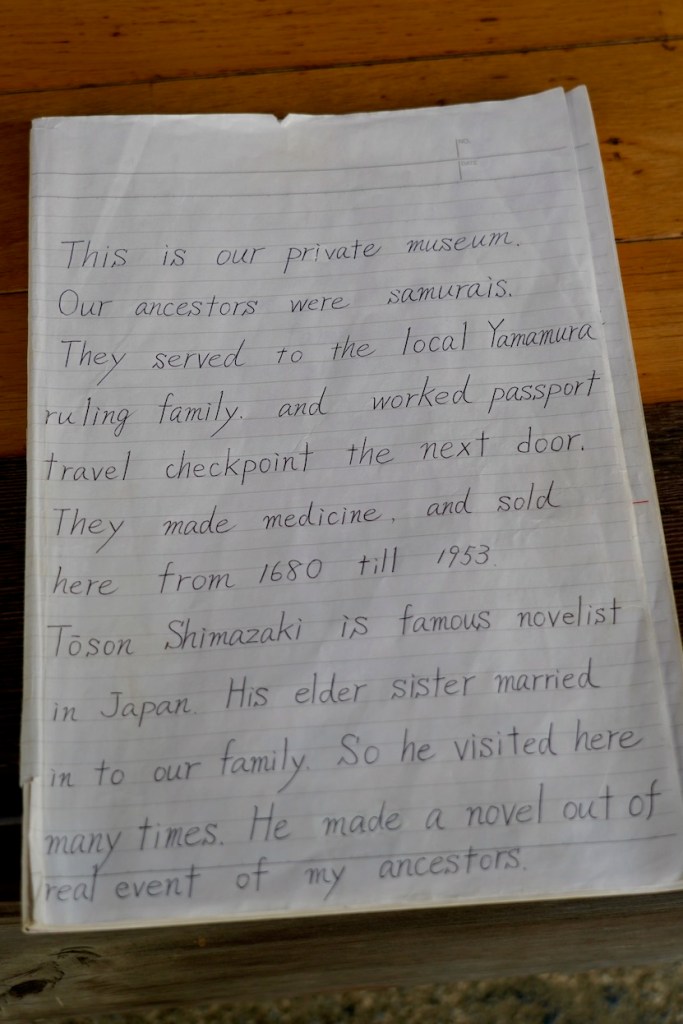 This is our private museum.
Our ancestors were samurais.
They served to the local Yamamura
ruling family. and worked passport
travel checkpoint the next door.
They made medicine, and sold
here from 1680 till 1953.
Tōson Shimazaki is famous novelist
in Japan. His elder sister married
in to our family. So he visited here
many times. He made a novel out of
real event of my ancestors.